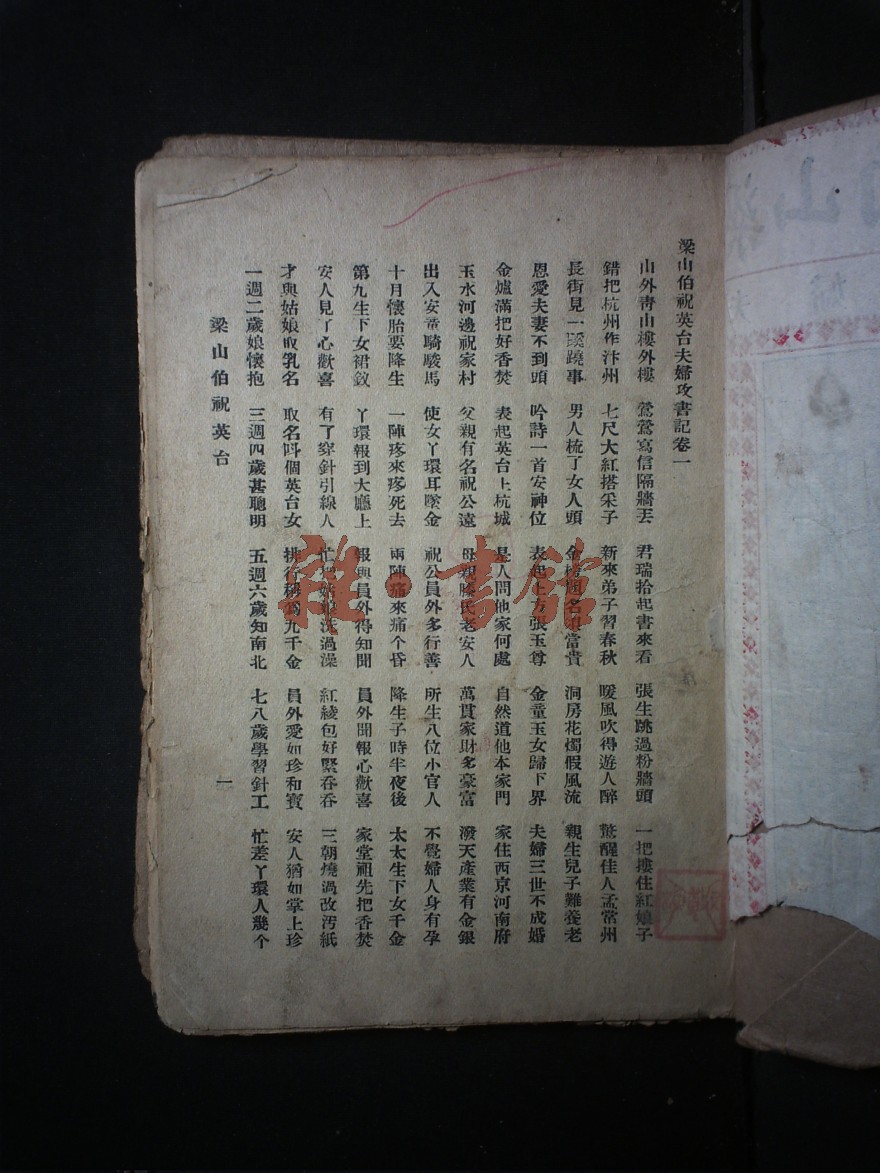 梁山伯祝英台夫婦攻書記卷一
山外靑山樓外樓 鶯鶯寫信隔牆丟 君瑞拾起書來看 張生跳過粉牆頭 一把摟住紅娘子
錯把杭州作汴州 七尺大紅搭采子 新來弟子習春秋 暖風吹得遊人醉 驚醒佳人孟常州
長街見一蹊蹺事 男人梳了女人頭 洞房花燭假風流 親生兒子難養老
恩愛夫妻不到頭 吟詩一首安神位 表起上方張玉尊 金童玉女歸下界 夫婦三世不成婚
金爐滿把好香焚 表起英台上杭城 是人問他家何處 自然道他本家門 家住西京河南府
玉水河邊祝家村 父親有名祝公遠 母親滕氏老安人 萬貫家財多豪富 潑天產業有金銀
出入安童騎駿馬 使女丫環耳墜金 祝公員外多行善 所生八位小官人 不覺婦人身有孕
十月懷胎要降生 一陣疼來疼死去 兩陣痛來痛个昏 降生子時半夜後 太太生下女千金
第九生下女裙釵 丫環報到大廳上 報與員外得知聞 員外聞報心歡喜 家堂祖先把香焚
安人見了心歡喜 有了穿針引線人 忙把姑娘洗過澡 紅綾包好緊吞吞 三朝燒過改汚紙
才與姑娘取乳名 取名呌個英台女 排行稱爲九千金 員外愛如珍和寶 安人猶如掌上珍
一週二歲娘懷抱 三週四歲甚聰明 五週六歲知南北 七八歲學習針工 忙差丫環人幾个
梁山伯祝英台 一
雜·書館